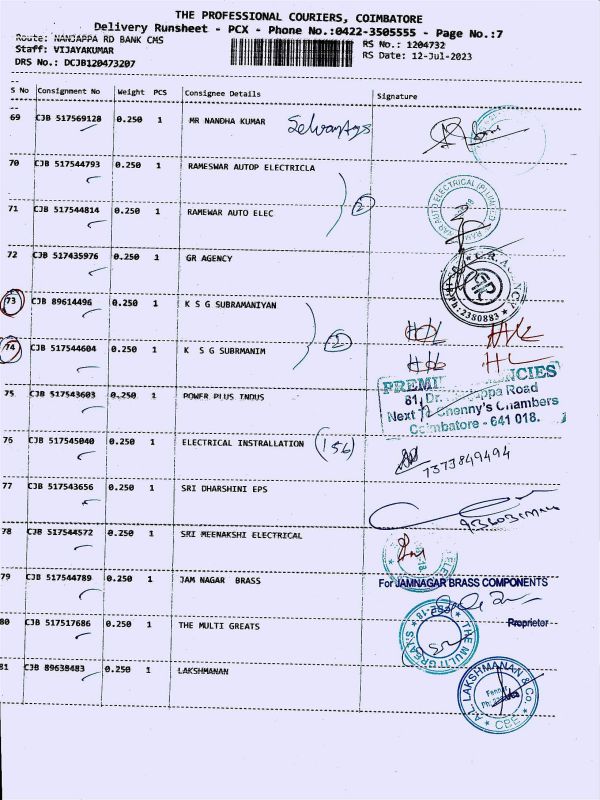 THE PROFESSIONAL COURIERS, COIMBATORE
Delivery Runsheet - PCX - Phone No.:0422-3505555 - Page No.:7
Route: NANJAPPA RD BANK CMS RS No.: 1204732
Staff: VIJAYAKUMAR RS Date: 12-Jul-2023
DRS No.: DCJB120473207
S No Consignment No Weight PCS Consignee Details Signature
69 CJB 517569128 0.250 1 MR NANDHA KUMAR
70 CJB 517544793 0.250 1 RAMESWAR AUTOP ELECTRICLA
71 CJB 517544814 0.250 1 RAMEWAR AUTO ELEC 2
AUTO ELECTRICAL (P) LIMITED
72 CJB 517435976 0.250 1 GR AGENCY
G.R. AGENCY
Ph: 2380883
73 CJB 89614496 0.250 1 K S G SUBRAMANIYAN
74 CJB 517544604 0.250 1 K S G SUBRMANIM 2
75 CJB 517543603 0.250 1 POWER PLUS INDUS
81, Dr. Road
Next Chambers
Coimbatore - 641 018.
76 CJB 517545040 0.250 1 ELECTRICAL INSTRALLATION (156)
7373849494
77 CJB 517543656 0.250 1 SRI DHARSHINI EPS
78 CJB 517544572 0.250 1 SRI MEENAKSHI ELECTRICAL
79 CJB 517544789 0.250 1 JAM NAGAR BRASS
For JAMNAGAR BRASS COMPONENTS
Proprietor
80 CJB 517517686 0.250 1 THE MULTI GREATS
THE MULTI GREATS
81 CJB 89638483 0.250 1 LAKSHMANAN
A.L. LAKSHMANAN & Co.
CBE